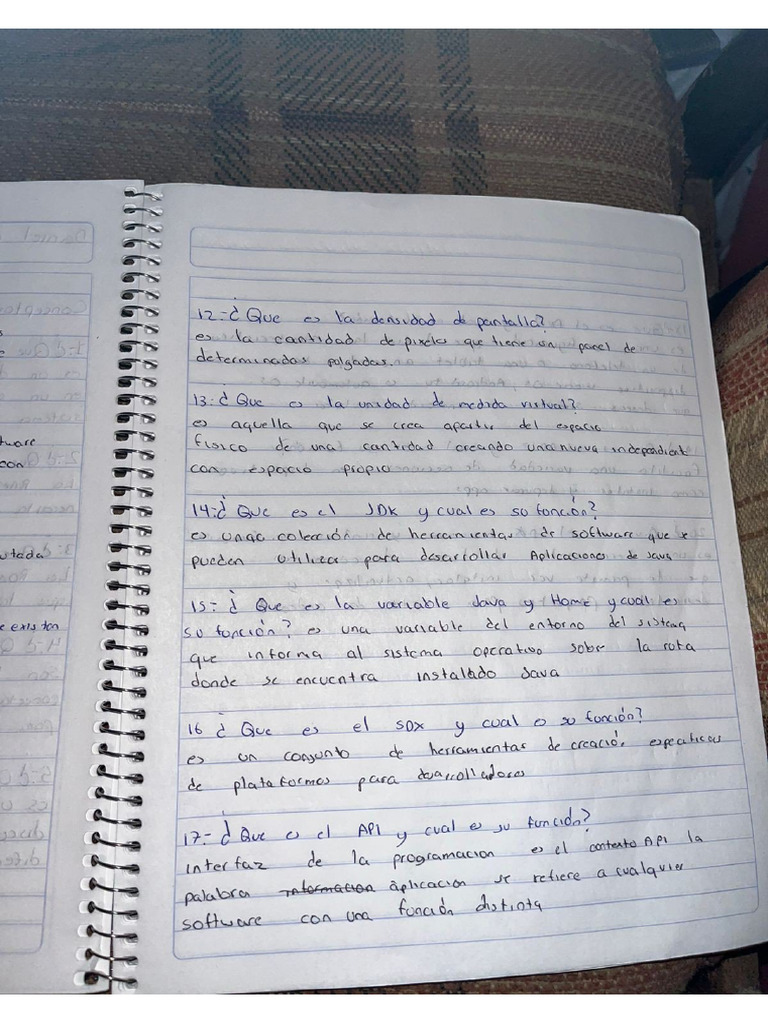 12.- ¿Que es la densidad de pantalla?
es la cantidad de pixeles que tiene un panel de
determinadas pulgadas.
13.- ¿Que es la unidad de medida virtual?
es aquella que se crea apartir del espacio
fisico de una cantidad creando una nueva independiente
con espacio propio
14.- ¿Que es el JDK y cual es su función?
es una colección de herramientas de software que se
pueden utilizar para desarrollar Aplicaciones de Java
15.- ¿Que es la variable Java y Home y cual es
su función? es una variable del entorno del sistema
que informa al sistema operativo sobre la ruta
donde se encuentra instalado Java
16 ¿Que es el SDK y cual es su función?
es un conjunto de herramientas de creación especificas
de plataformas para desarrolladores
17.- ¿Que es el API y cual es su función?
interfaz de la programacion es el contexto API la
palabra informacion aplicacion se refiere a cualquier
software con una función distinta